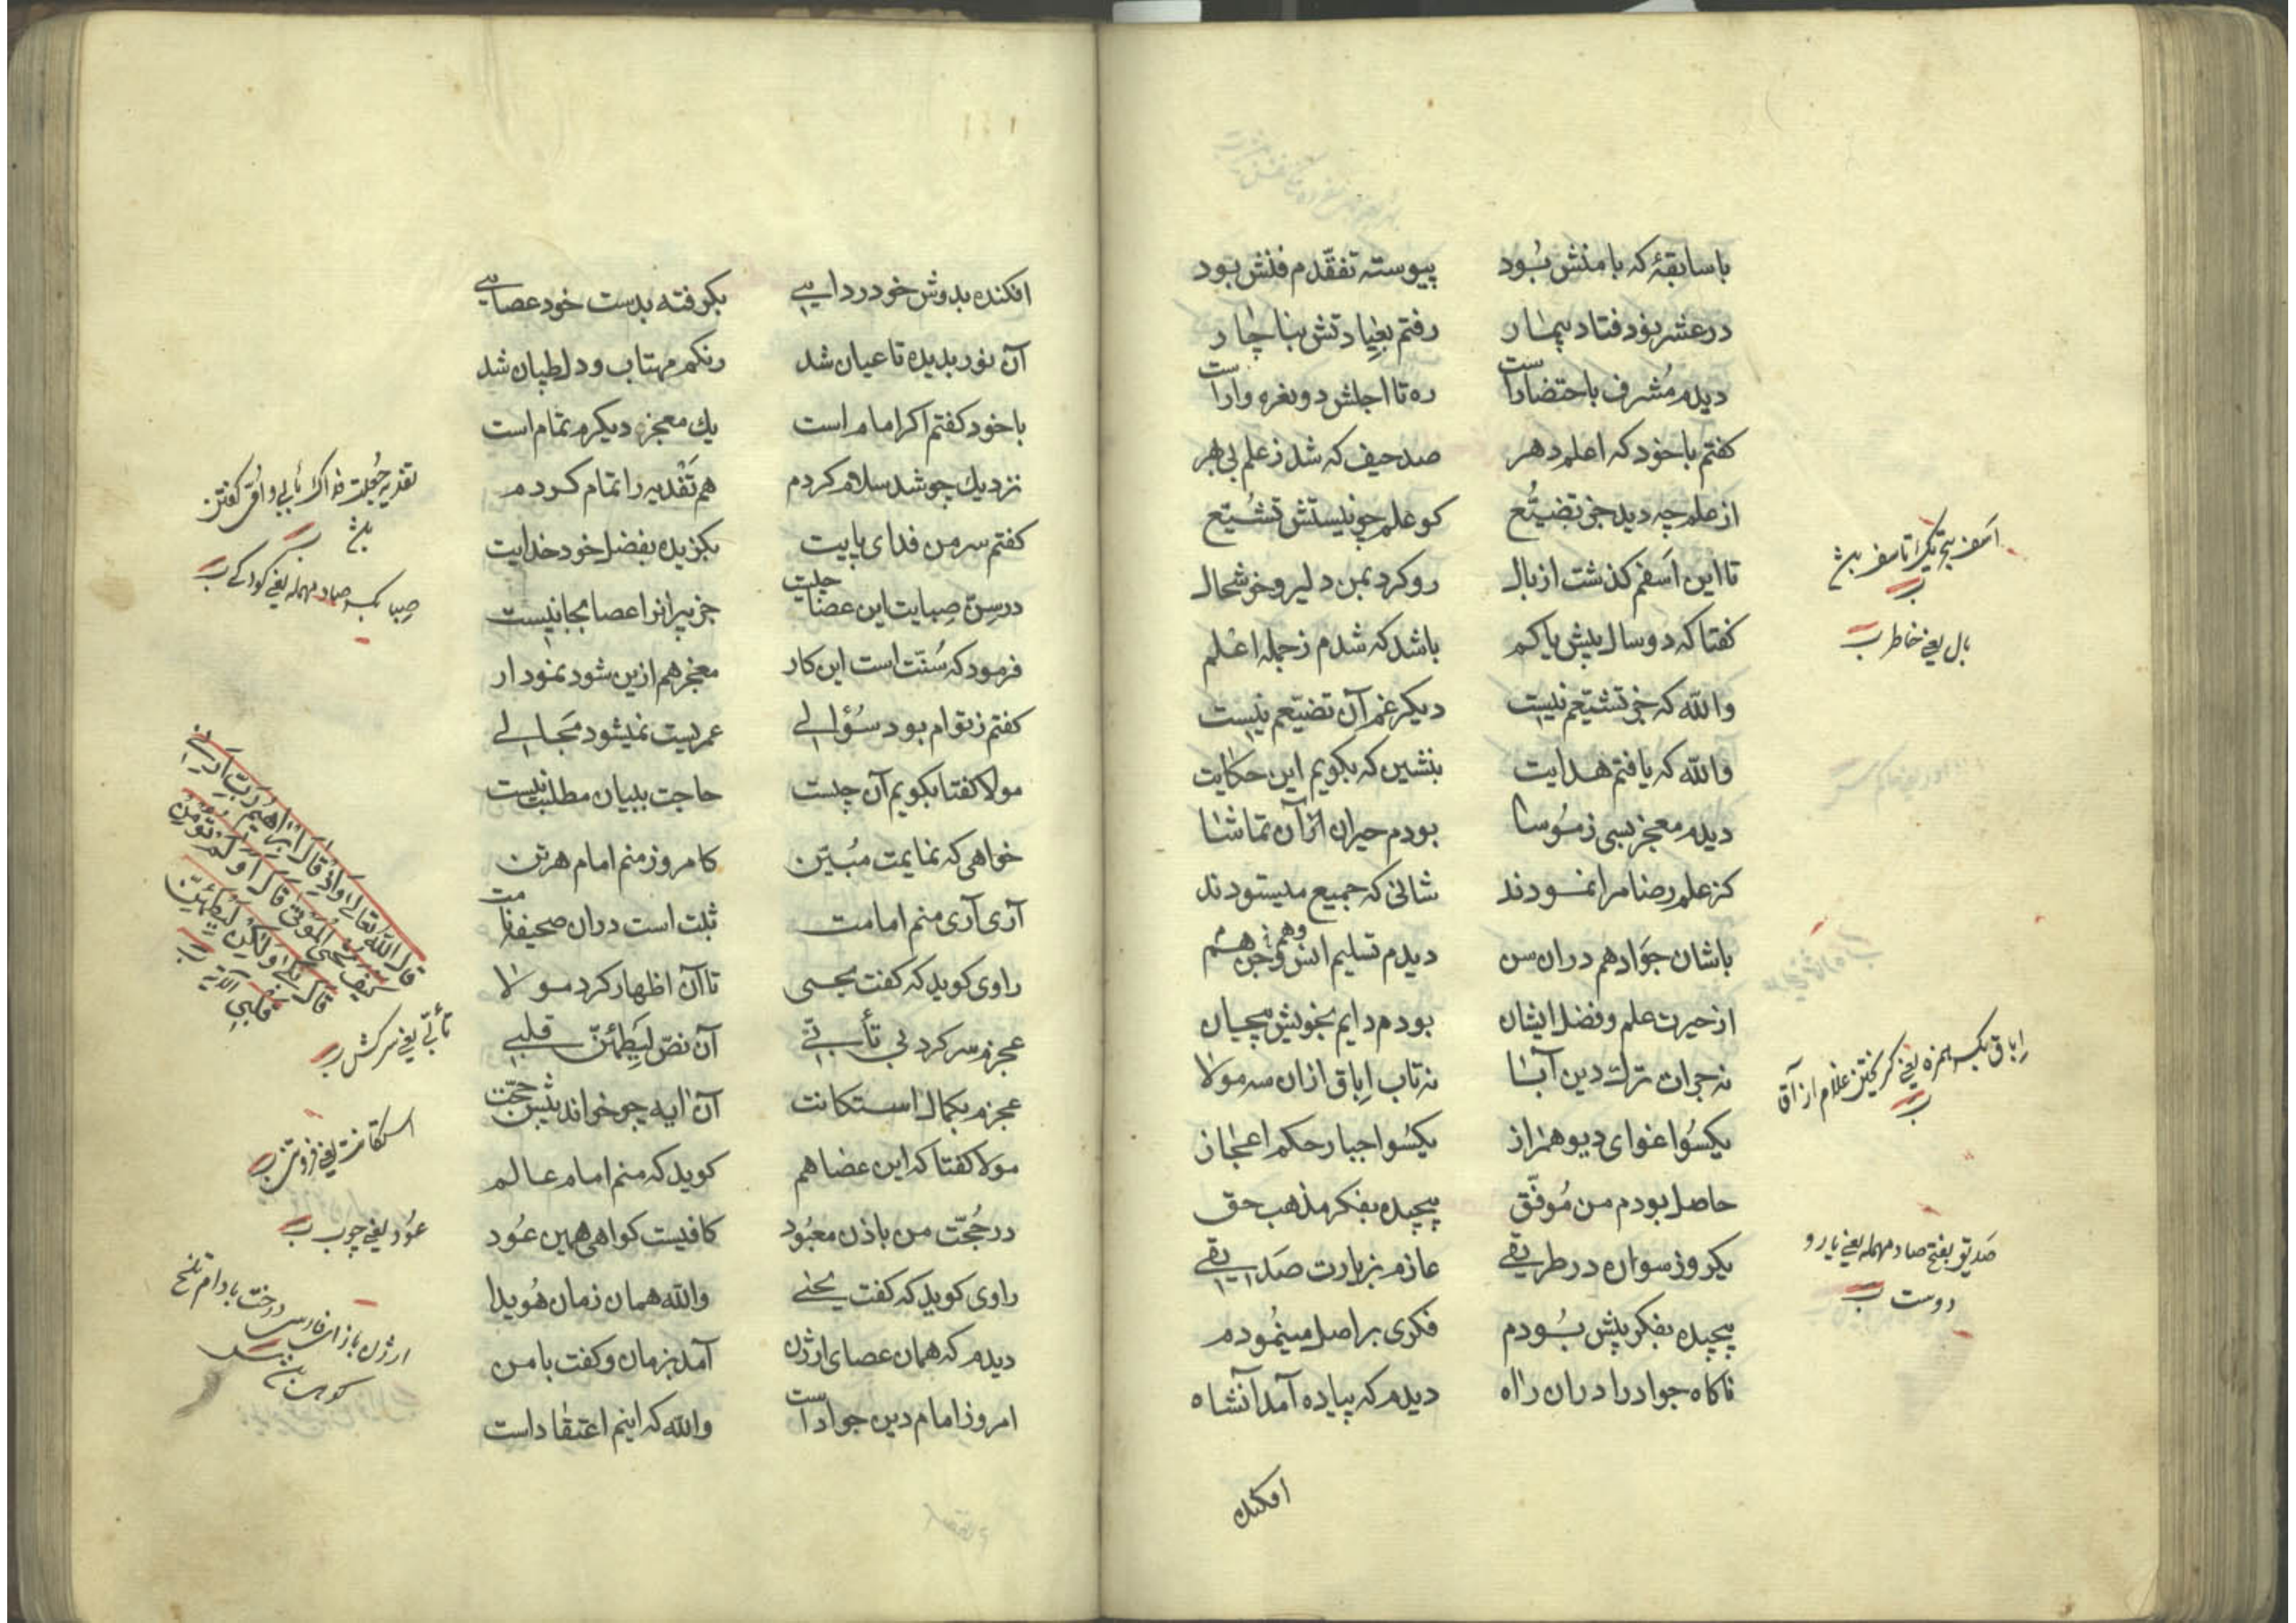 با سابقهٔ که با منش بُود پیوسته تفقّدم فنش بود
در عشر بود فتاد بیمار رفتم بعیادتش بناچار
دیدم مُشرف باحتضار است ره تا اجلش دو نغره وار است
کفتم با خود که اعلم دهر صد حیف که شد ز علم بی بهر
از علم چه دید جز تضیّع کو علم چو نیستش تشیّع
تا این اَسَفم کذشت از بال رو کرد بمن دلیر و خوشحال
کفتا که دو سال پیش یا کم باشد که شدم ز جمله اعلم
والله که جز تشیّعم نیست دیکر غم آن تضیّعم نیست
والله که یافتم هدایت بنشین که بکویم این حکایت
دیدم معجز بسی ز مُوسا بودم حیران از آن تماشا
کز علم رضا مرا نمودند شانی که جمیع میستودند
با شان جَواد هم دران سن دیدم تسلیم انس و هم جن
از حیرت علم و فضل ایشان بودم دایم بخویش پیچان
نه جرات ترك دین آبا نه تاب اِباق ازان سه مولا
یکسُو اغوای دیو همراز یکسُو اجبار حکم اعجاز
حاصل بودم من مُوفّق پیچیده بفکر مذهب حق
یکروز سواره در طریقی عازم بزیارت صَدیقی
پیچیده بفکر پیش بُودم فکری بر اصل مینمُودم
ناکاه جواد را دران راه دیدم که پیاده آمد آنشاه
افکنده
اَسَف بتحریك تاسف بش ب
بال یعنی خاطر ب
اِباق بکسر همزه یعنی کریختن غلام از آقا ب
صَدیق بفتح صاد مهمله یعنی یار و
دوست ب
افکنده بدوش خود ردایی بکرفته بدست خود عصایی
آن نور بدیده تا عیان شد رنکم مهتاب و دل طپان شد
با خود کفتم اکر امام است یك معجزهٔ دیکرم تمام است
نزدیك چو شد سلام کردم هم تَفْدیه را تمام کردم
کفتم سر من فدای پایت بکزیده بفضل خود خدایت
در سِنّ صِبایت این عصا چیست جز پیرانرا عصا بجا نیست
فرمود که سُنّت است این کار معجز هم ازین شود نمودار
کفتم ز توام بود سُؤالی عمریست نمیشود مَجالی
مولا کفتا بکویم آن چیست حاجت ببیان مطلبت نیست
خواهی که نمایمت مبُیّن کامروز منم امام هر تن
آری آری منم امامت ثبت است دران صحیفه نامت
راوی کوید که کفت یحیی تا آن اظهار کرد مولا
عجزم سر کرد بی تأبّی آن نصّ لیَطمَئنّ قلبی
عجزم بکمال استکانت آن ایه چو خواند پیش حجّت
مولا کفتا که این عصا هم کوید که منم امام عالم
در حُجّت من باذن معبُود کافیست کواهی همین عُود
راوی کوید که کفت یحیی والله همان زمان هُویدا
دیدم که همان عصای ارژن آمد بزمان و کفت با من
امروز امام دین جواد است والله که اینم اعتقاد است
تفدیه جُعلت فداك بابی و امّی کفتن
بش ب
صِبا بکسر صاد مهمله یعنی کودکی ب
قال الله تعالی و اذ قال ابراهیم رَبّ اَرِنی
کیف تُحیی المَوْتی قال اَوَ لَمْ تُؤمِنْ
قال بَلی وَ لکِنْ لِیَطْمَئِنَّ
قلبی الآیة ب
تأبّی یعنی سرکشی ب
استکانت یعنی فروتنی ب
عُود یعنی چوب ب
ارژن با زای فارسی درخت بادام تلخ
کوهی بش